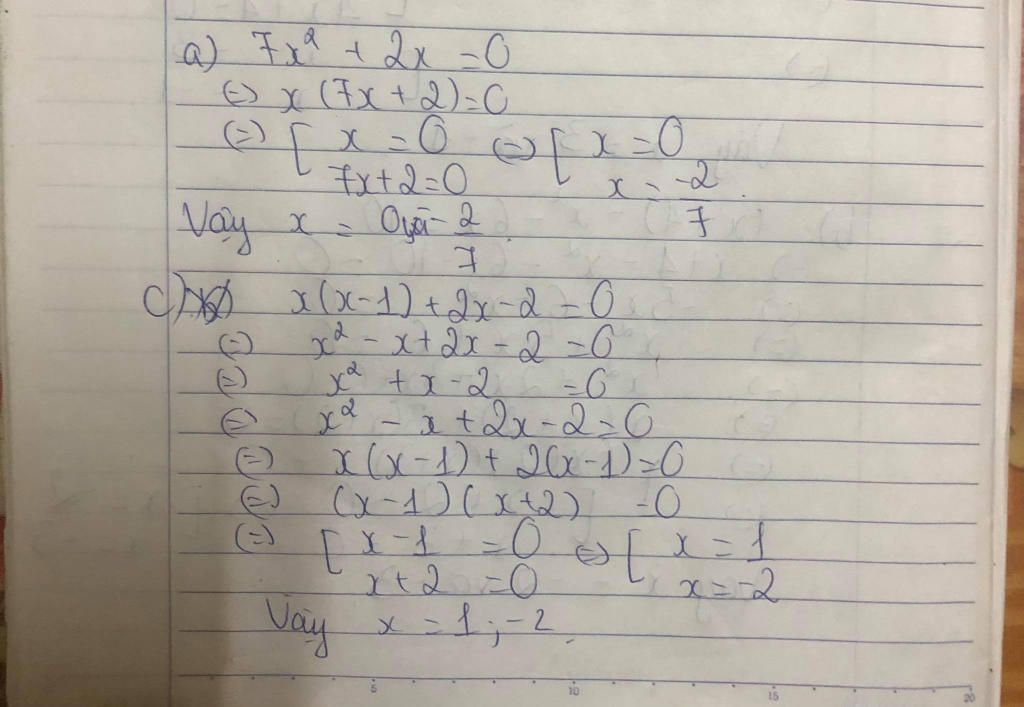 a) 7x² + 2x = 0
(=) x (7x + 2) = 0
(=) [ x = 0 (=) [ x = 0
7x + 2 = 0 x = -2/7
Vậy x = 0 và -2/7.
c) x(x-1) + 2x - 2 = 0
(=) x² - x + 2x - 2 = 0
(=) x² + x - 2 = 0
(=) x² - x + 2x - 2 = 0
(=) x(x-1) + 2(x-1) = 0
(=) (x-1)(x+2) = 0
(=) [ x - 1 = 0 (=) [ x = 1
x + 2 = 0 x = -2
Vậy x = 1 ; -2.
5 10 15 20